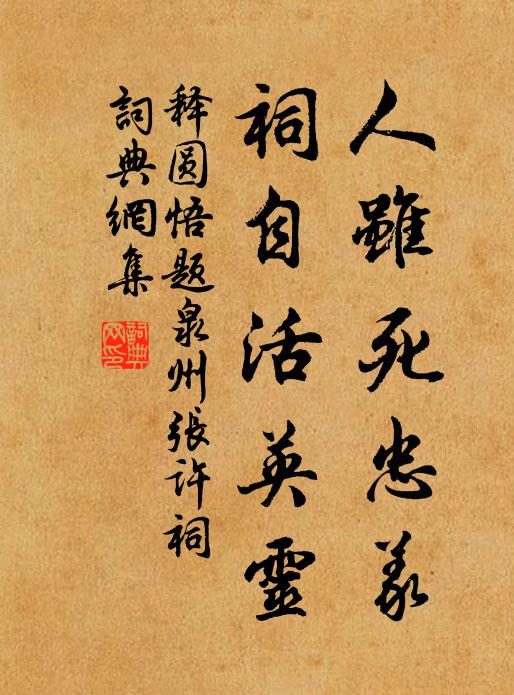 人雖死忠義
祠自活英靈
释圆悟题泉州張许祠
詞典網集
詞典
网印